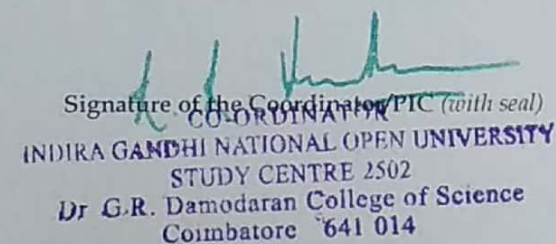 Signature of the Coordinator/PIC (with seal)
CO-ORDINATOR
INDIRA GANDHI NATIONAL OPEN UNIVERSITY
STUDY CENTRE 2502
Dr G.R. Damodaran College of Science
Coimbatore 641 014